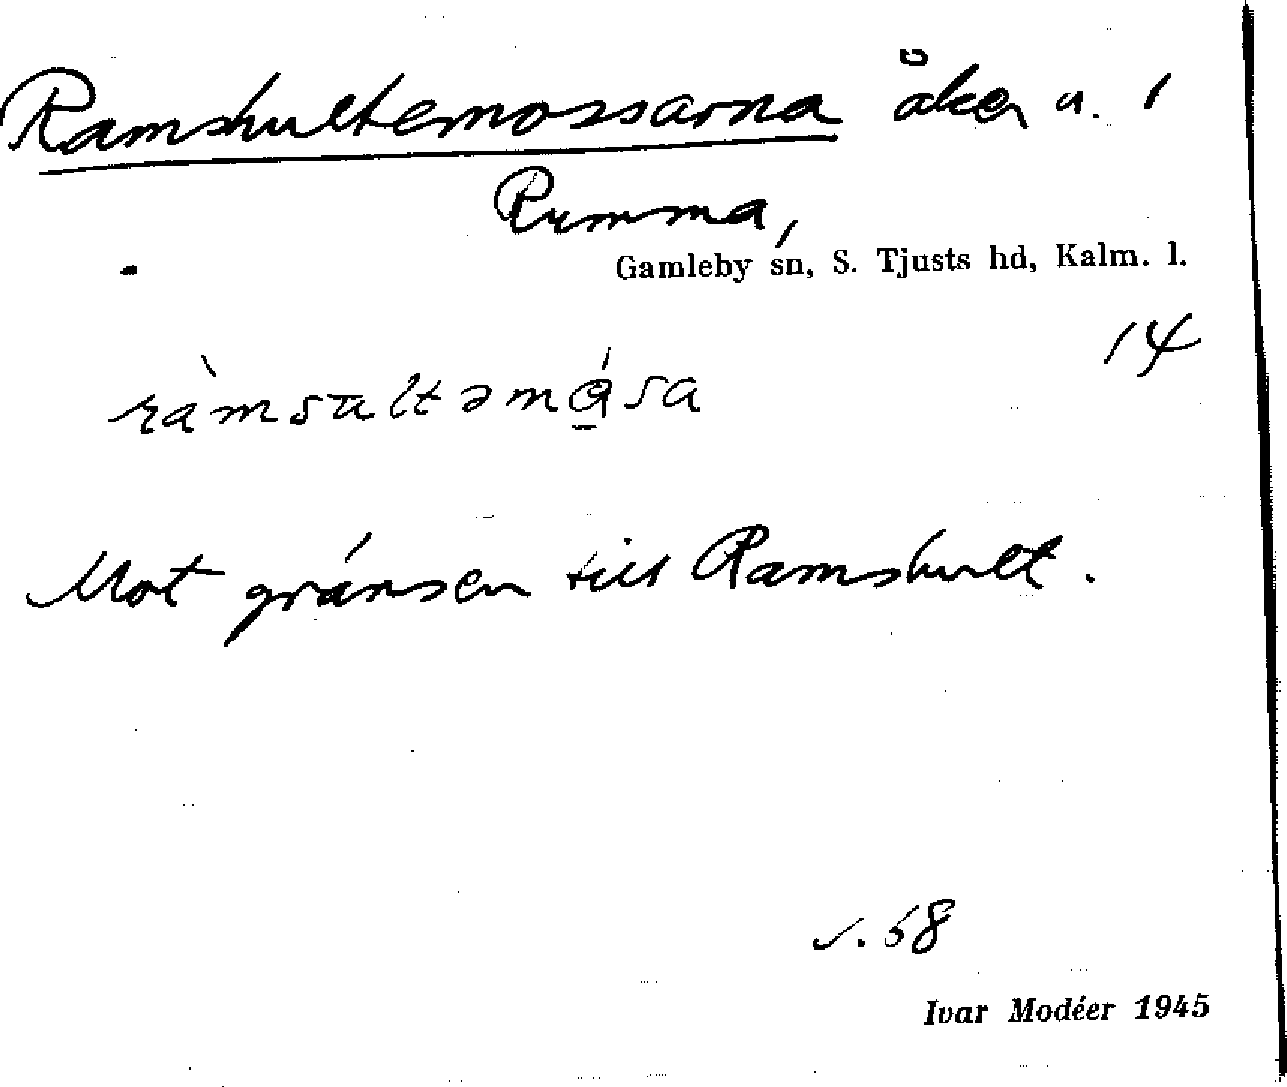 Ramshultemossarna åker n. 1
Rumma,
Gamleby sn, S. Tjusts hd, Kalm. l.
14
ràmsultəmǻsa
Mot gränsen till Ramshult.
s. 68
Ivar Modéer 1945